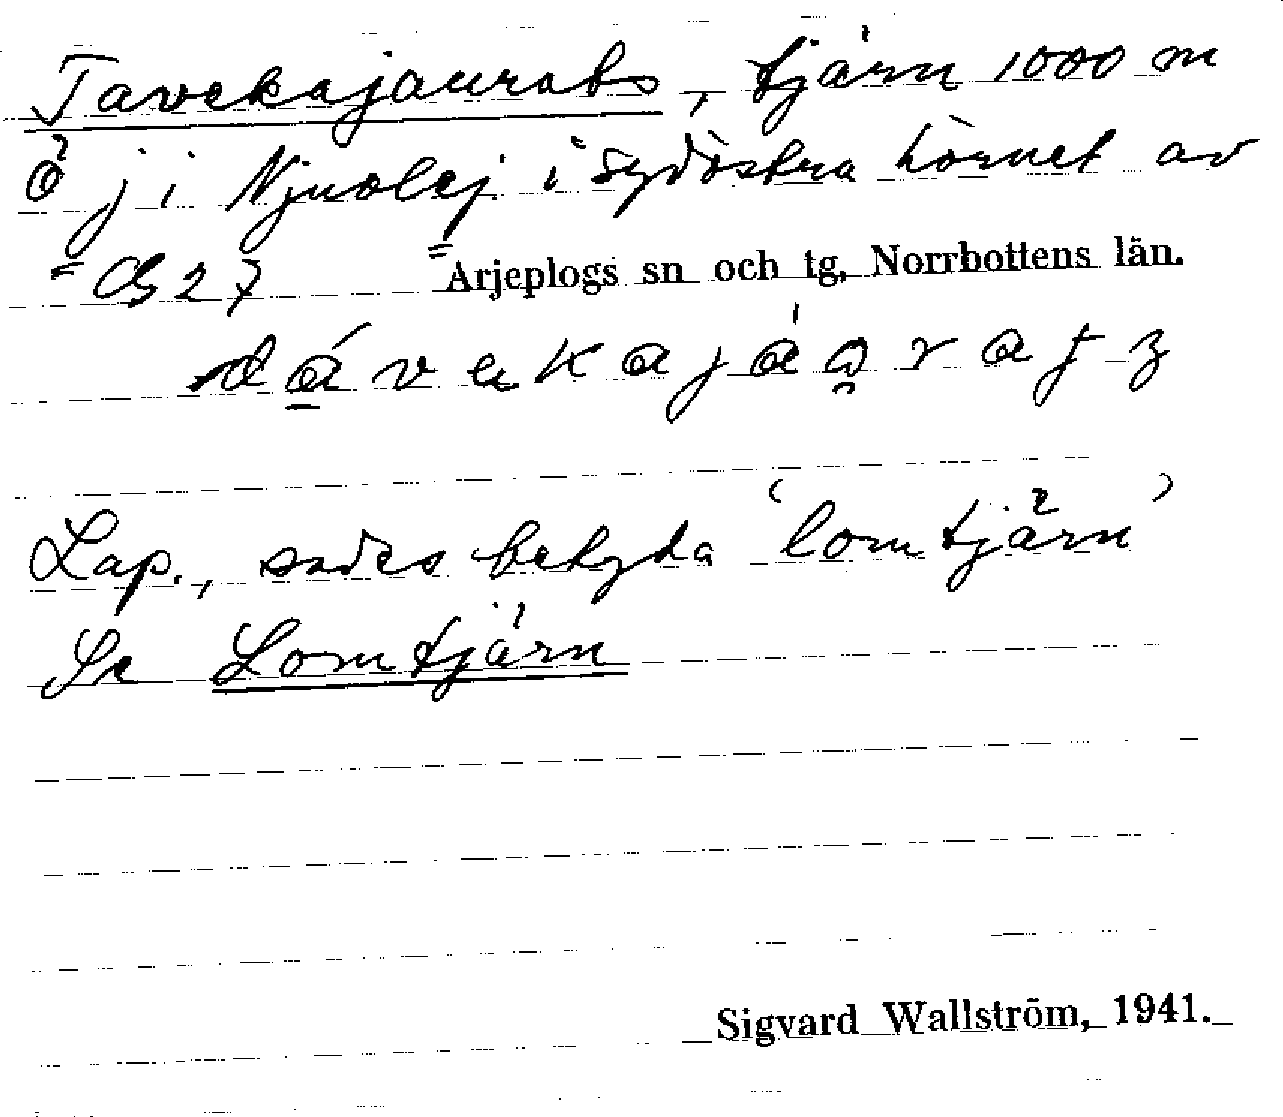 Tavekajaurats, tjärn 1000 m
Ö j i Njuolej i sydöstra hörnet av
27 Arjeplogs sn och tg, Norrbottens län.
Lap., sades betyda 'lomtjärn'
Se Lomtjärn
Sigvard Wallström, 1941.